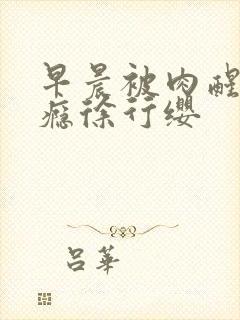 早晨被肉醒
瘾徐行缨
吕華